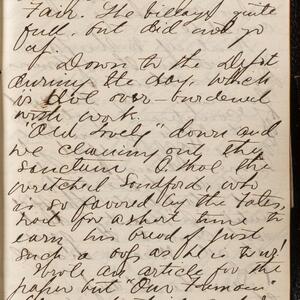 Fair. The billiards quite
full, but did not go
up.
Down to the Dept
during the day, which
is not over-burdened
with work.
"Old Lovely" down and
we cleaning out the
sanctum. O that the
wretched Sandford, who
is so favored by the fates,
had for a short time to
earn his bread of just
such a as he is now!
Wrote an article for the
paper but "Our Famous"